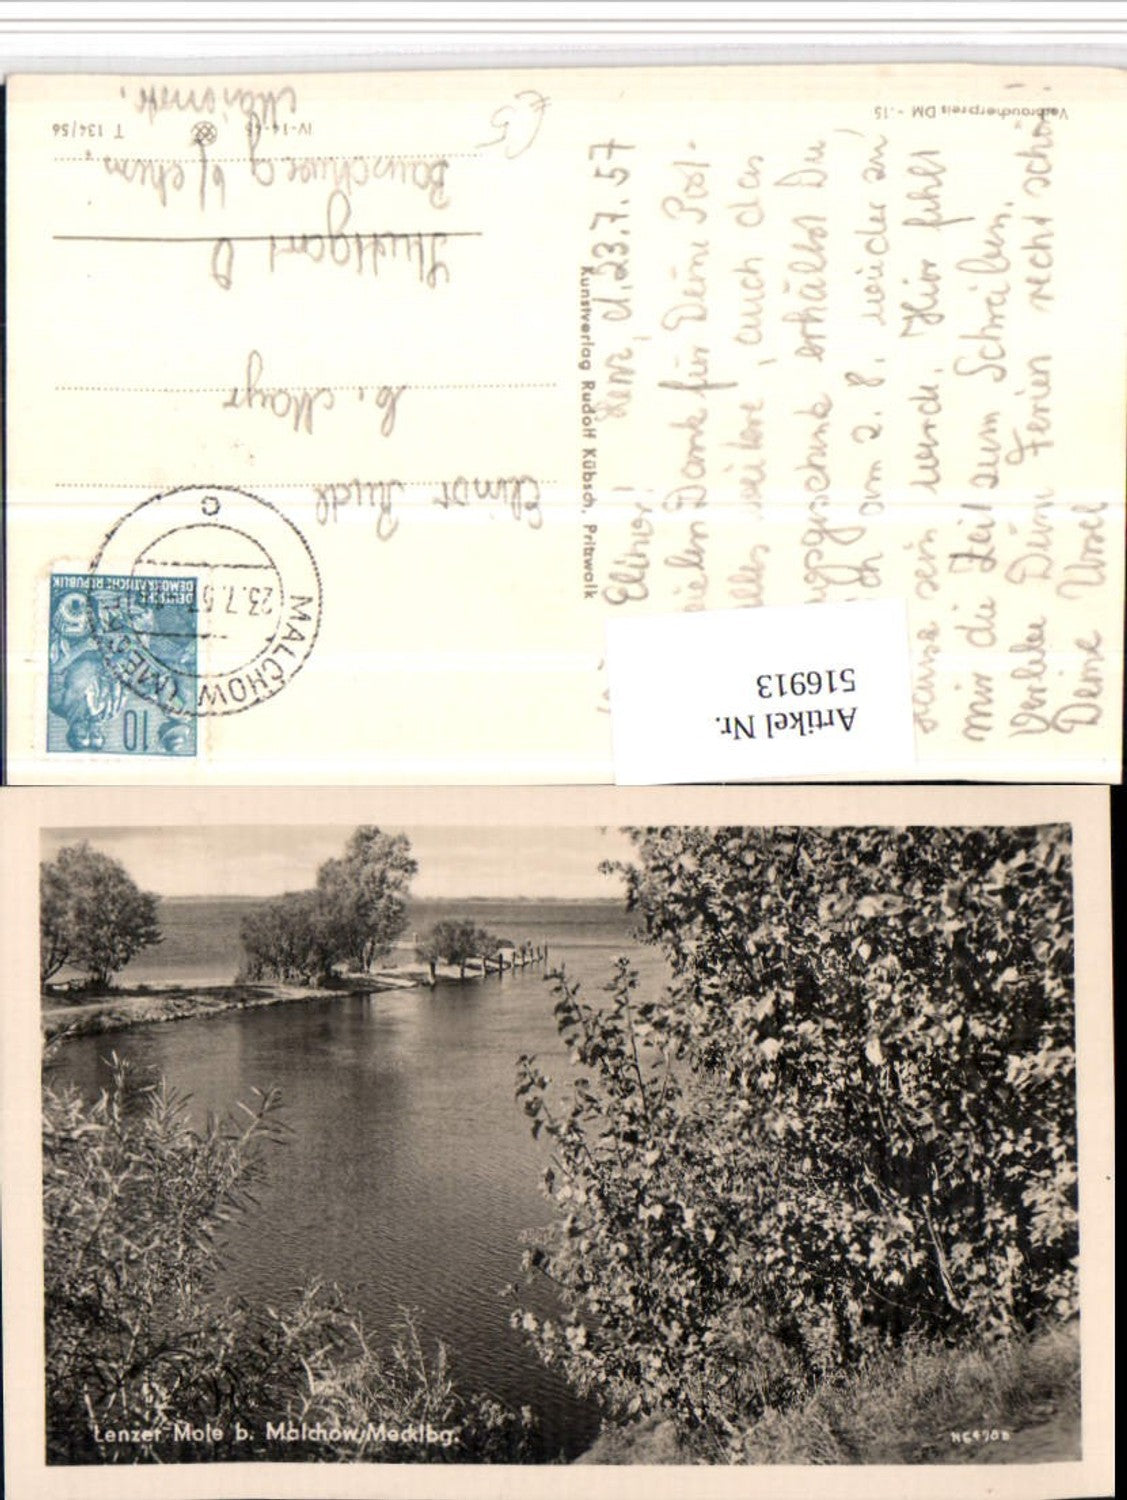 Verbraucherpreis DM -.15
IV-14-45 T 134/56
Kunstverlag Rudolf Kübsch, Pritzwalk
Lenz, d. 23.7.57
Elinor!
vielen Dank für Deine Post-
alles weitere, auch das
erhältst Du
am 2.8. wieder zu
Hause sein werde. Hier fehlt
mir die Zeit zum Schreiben.
Verlebe Deine Ferien recht schön
Deine Ursel
Elinor
b. Mayr
Stuttgart O
MALCHOW (MECKL)
23.7.57
c
DEUTSCHE
DEMOKRATISCHE REPUBLIK
5
10
Artikel Nr.
516913
Lenzer Mole b. Malchow/Mecklbg.